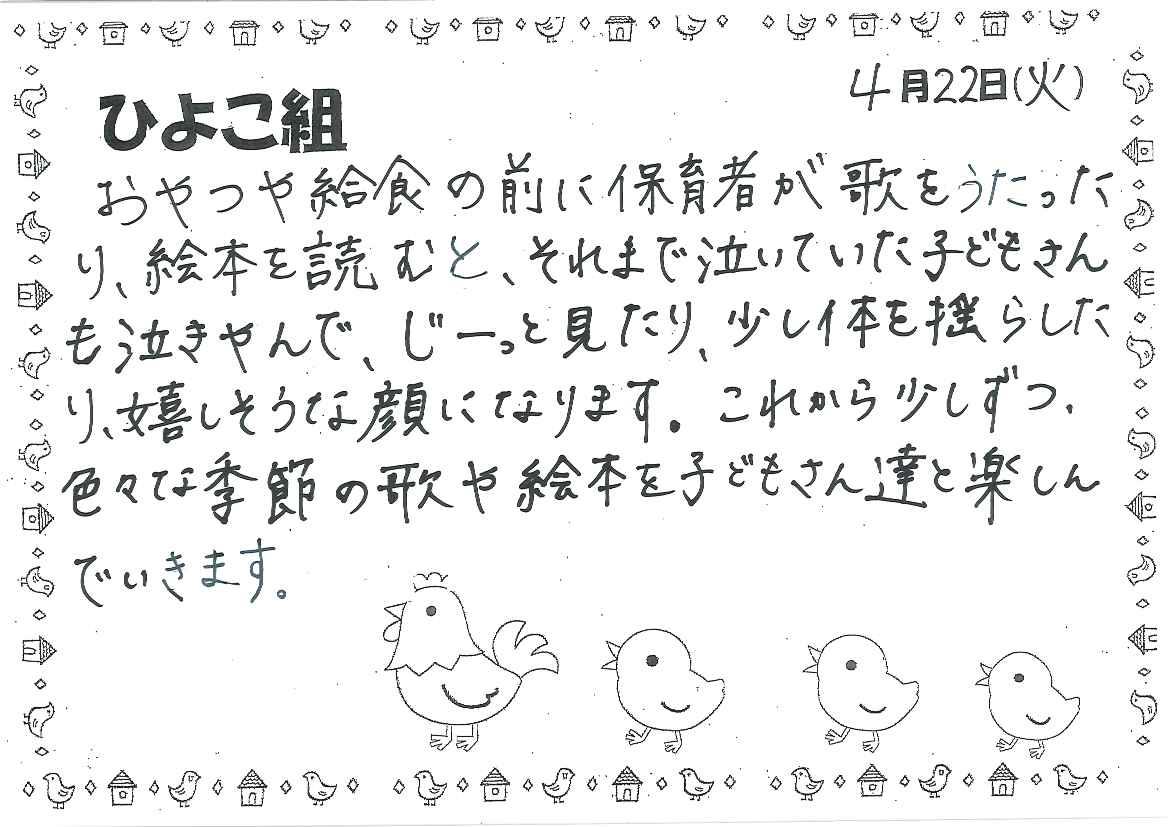 4月22日(火)
ひよこ組
おやつや給食の前に保育者が歌をうたった
り、絵本を読むと、それまで泣いていた子どもさん
も泣きやんで、じーっと見たり、少し体を揺らした
り、嬉しそうな顔になります。これから少しずつ、
色々な季節の歌や絵本を子どもさん達と楽しん
でいきます。